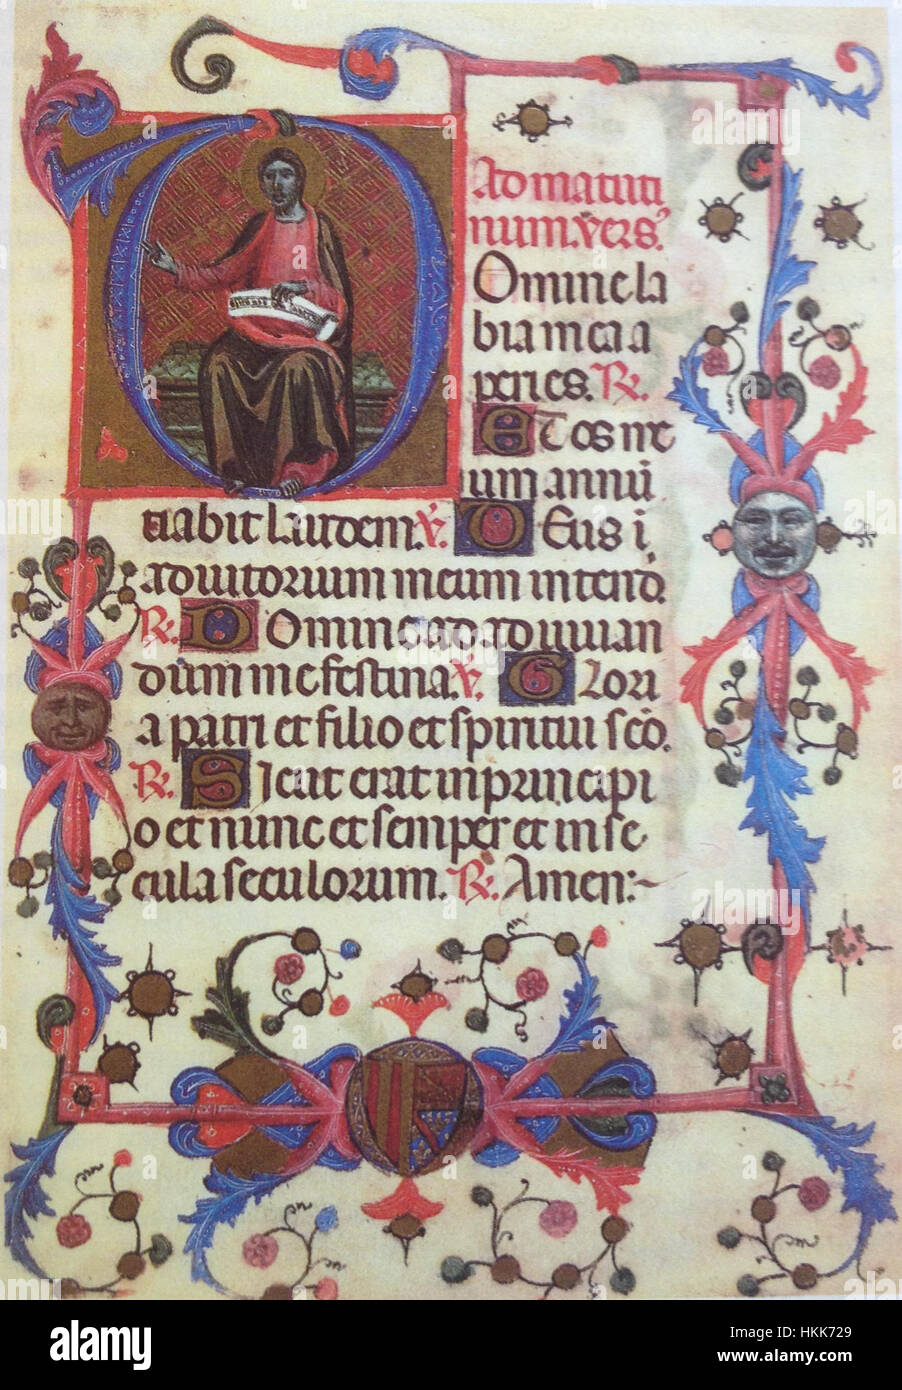 Ad matuti
num. Vers.
Omine la
bia mea a
peries. R.
Et os me
um annū
tiabit laudem. V. Deus i
adiutorium meum intend.
R. Domine ad adiuuan
dum me festina. V. Glori
a patri et filio et spiritui sc̄o.
R. Sicut erat in principi
o et nunc et semper et in se
cula seculorum. R. Amen:~
alamy
alamy
Image ID: HKK729
www.alamy.com